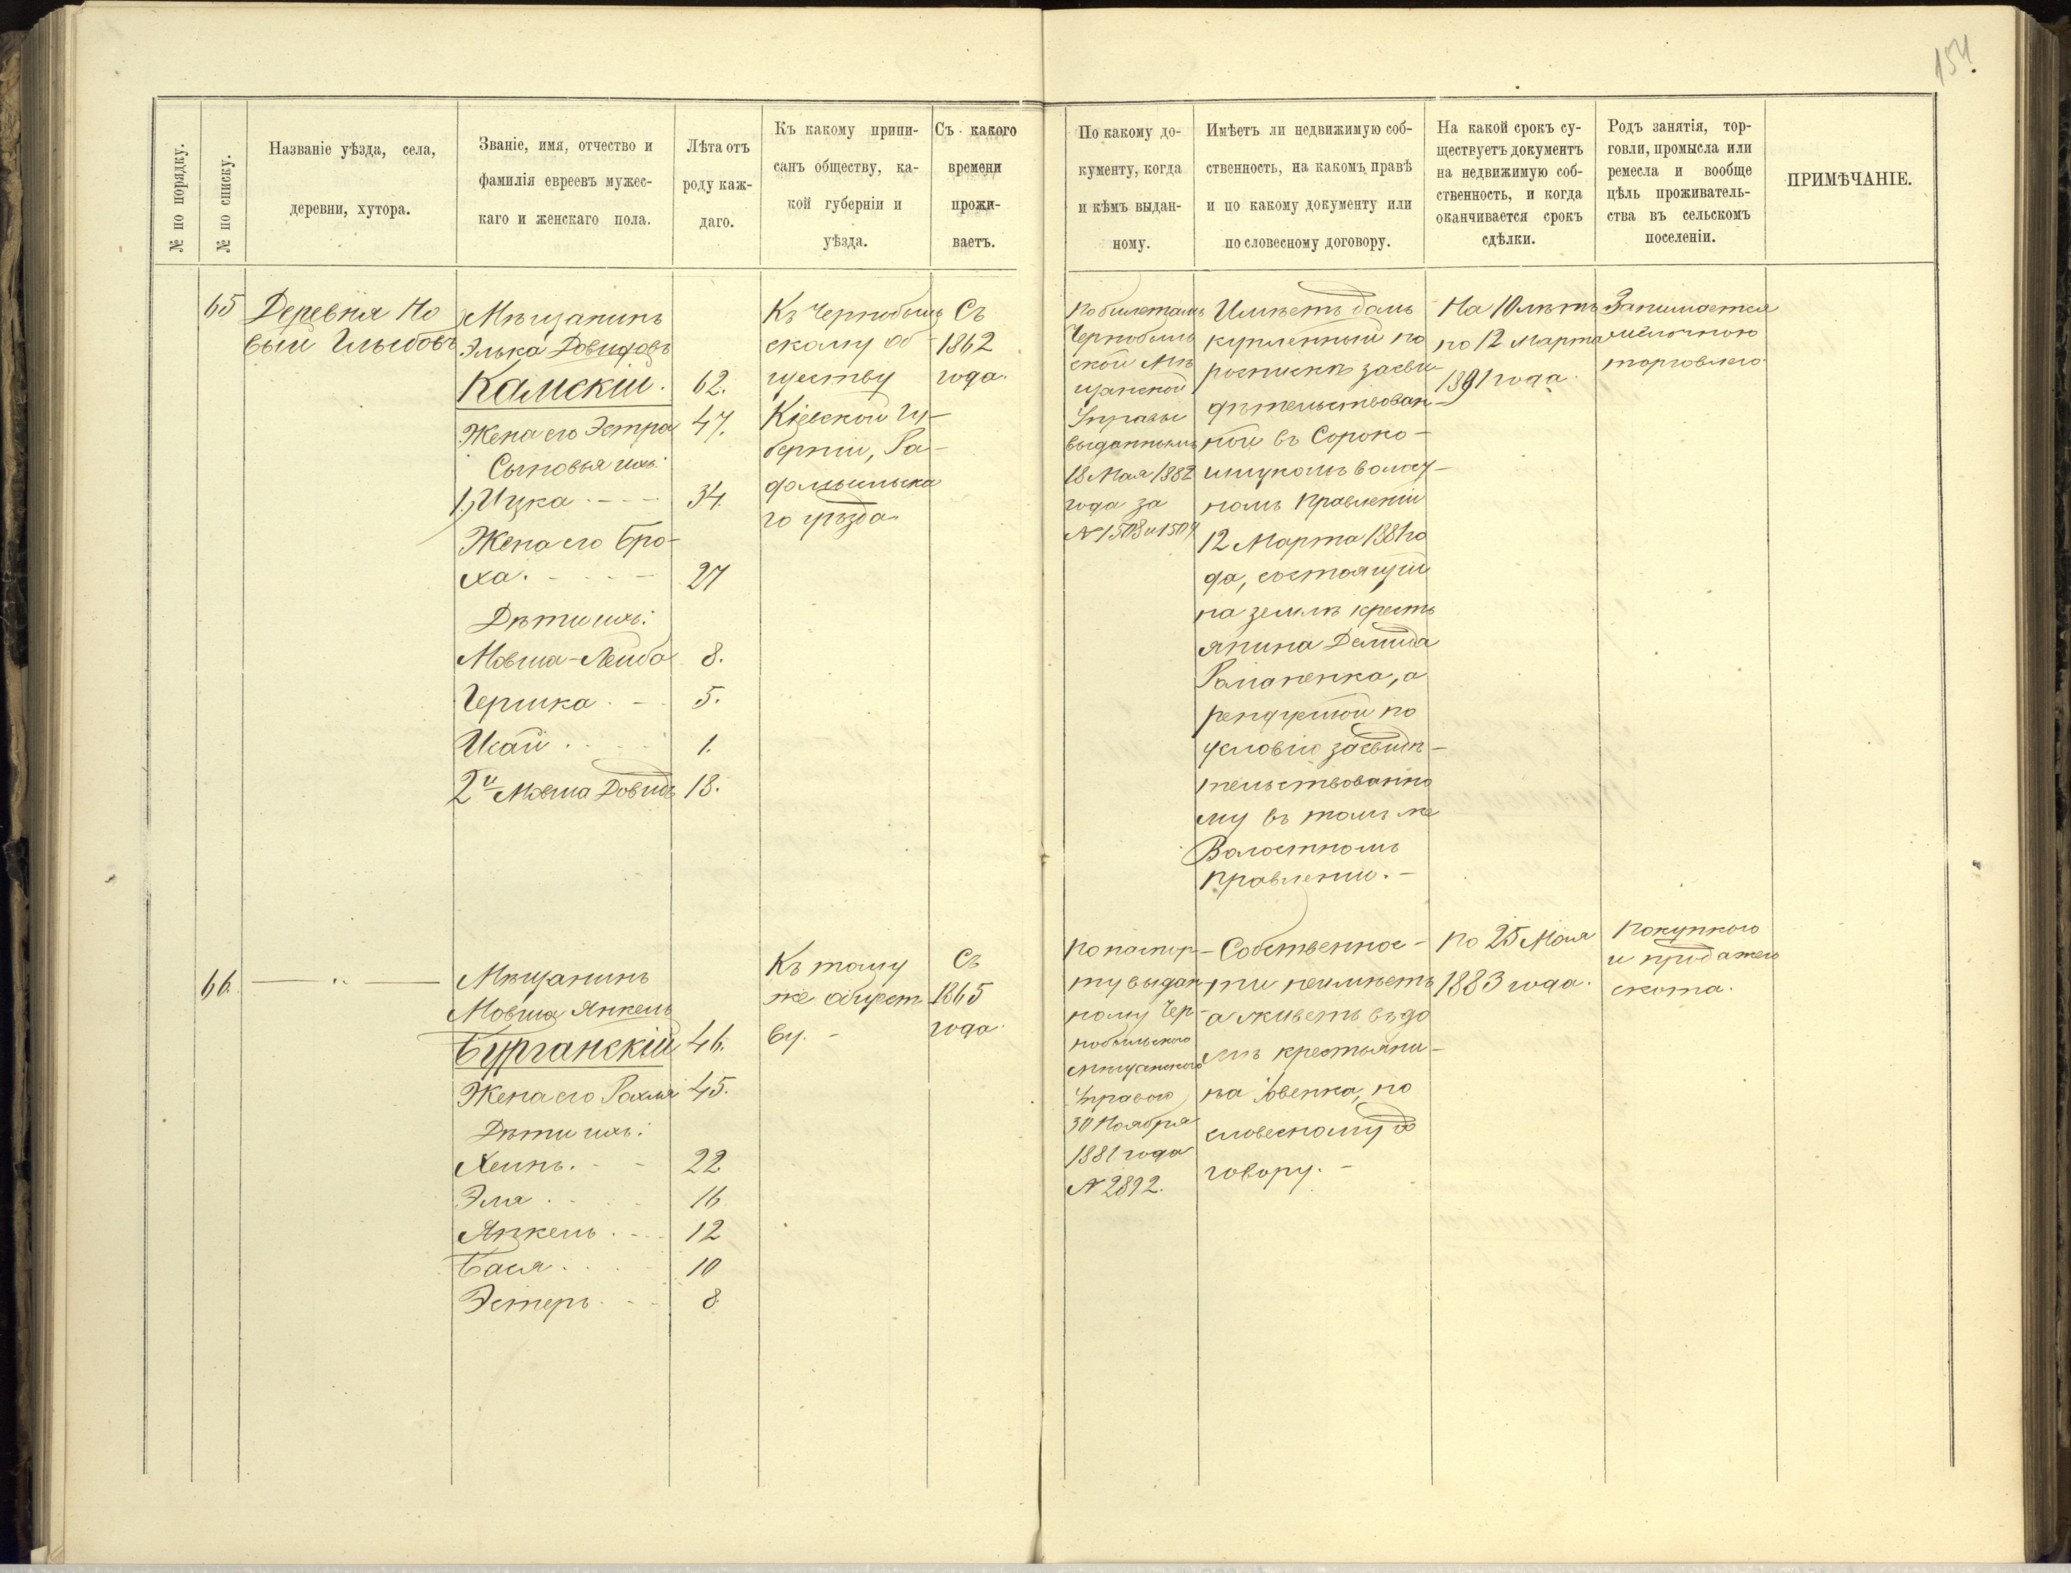 154.
№ по порядку.
№ по списку.
Названіе уѣзда, села,
деревни, хутора.
Званіе, имя, отчество и
фамилія евреевъ мужес-
каго и женскаго пола.
Лѣта отъ
роду каж-
даго.
Къ какому припи-
санъ обществу, ка-
кой губерніи и
уѣзда.
Съ какого
времени
прожи-
ваетъ.
По какому до-
кументу, когда
и кѣмъ выдан-
ному.
Имѣетъ ли недвижимую соб-
ственность, на какомъ правѣ
и по какому документу или
по словесному договору.
На какой срокъ су-
ществуетъ документъ
на недвижимую соб-
ственность, и когда
оканчивается срокъ
сдѣлки.
Родъ занятія, тор-
говли, промысла или
ремесла и вообще
цѣль проживатель-
ства въ сельскомъ
поселеніи.
ПРИМѢЧАНІЕ.
65
Деревня Но
вый Глыбовъ
Мѣщанинъ
Элька Довидовъ
Камскій. 62.
Жена его Эстра 47.
Сыновья ихъ:
1, Ицка - - - 34.
Жена его Бро-
ха. - - - - 27
Дѣти ихъ:
Мовша-Лейба 8.
Гершка . - 5.
Исай . . . 1.
2й Мовша Довидъ 18.
Къ Чернобыль
скому об-
ществу
Кіевской Гу-
берніи, Ра-
домысльска
го уѣзда
Съ
1862
года.
По билетамъ
Чернобыль
ской Мѣ
щанской
Управы
выданнымъ
18 Мая 1882
года за
№ 1503 и 1504
Имѣетъ домъ
купленный по
роспискѣ засви
дѣтельствован-
ной въ Сороко-
шицкомъ волост-
номъ Правленіи
12 Марта 1881 го
да, состоящій
на землѣ кресть
янина Демида
Романенка, а
рендуемой по
условію засвидѣ-
тельствованно
му въ томъ же
Волостномъ
Правленіи. -
На 10 лѣтъ
по 12 Марта
1891 года.
Занимается
мѣлочною
торговлею.
66 — " —
Мѣщанинъ
Мовша Янкель
Бурганскій 46.
Жена его Рахля 45.
Дѣти ихъ:
Хеинъ. - - 22
Эля . . . 16
Янкель . - - 12
Бася . . . 10
Эстеръ . - - 8
Къ тому
же общест
ву. -
Съ
1865
года.
По паспор-
ту выдан
ному Чер-
нобыльского
мѣщанского
Управою
30 Ноября
1881 года
№ 2892.
Собственнос-
ти неимѣетъ
а живетъ въ до
мѣ крестьяни-
на Ювенка, по
словесному до
говору. -
По 25 Мая
1883 года.
Покупкою
и продажею
скота.